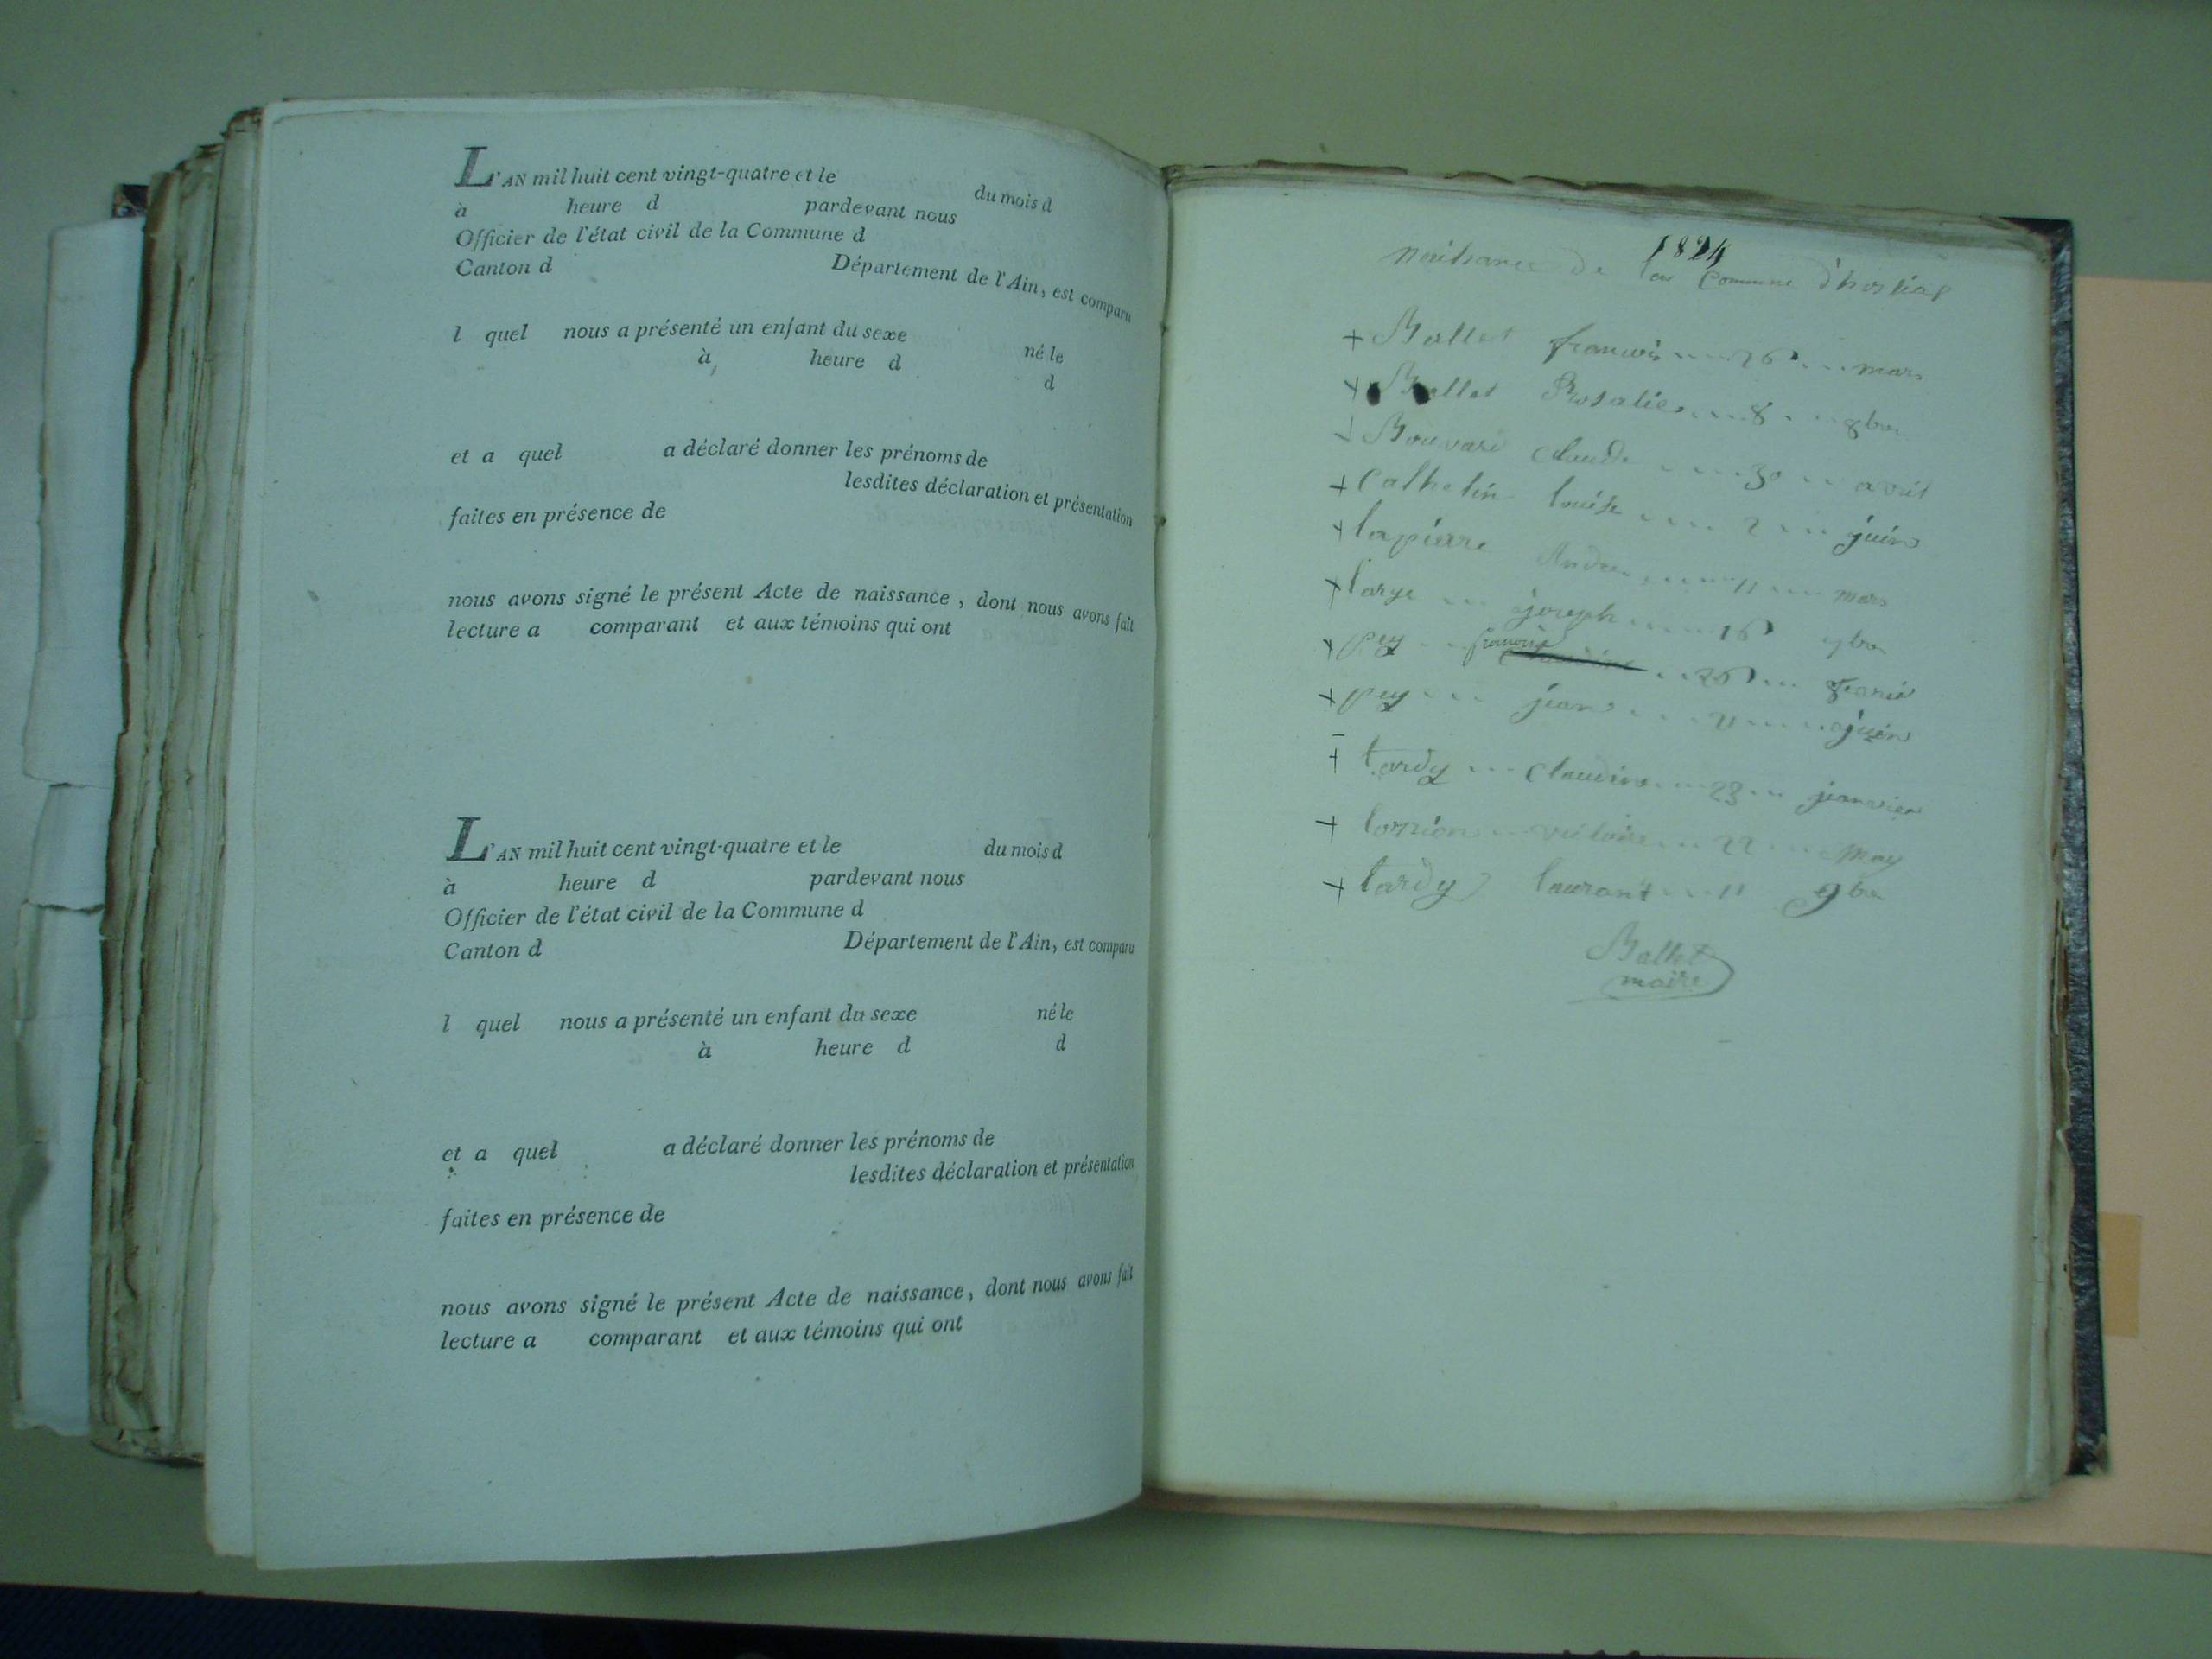 L'AN mil huit cent vingt-quatre et le du mois d
à heure d pardevant nous
Officier de l'état civil de la Commune d
Canton d Département de l'Ain, est comparu
l quel nous a présenté un enfant du sexe né le
à heure d d
et a quel a déclaré donner les prénoms de
lesdites déclaration et présentation
faites en présence de
nous avons signé le présent Acte de naissance, dont nous avons fait
lecture a comparant et aux témoins qui ont
L'AN mil huit cent vingt-quatre et le du mois d
à heure d pardevant nous
Officier de l'état civil de la Commune d
Canton d Département de l'Ain, est comparu
l quel nous a présenté un enfant du sexe né le
à heure d d
et a quel a déclaré donner les prénoms de
lesdites déclaration et présentation
faites en présence de
nous avons signé le présent Acte de naissance, dont nous avons fait
lecture a comparant et aux témoins qui ont
1824
de la Commune d'hostias
+ Ballet francois 26 mars
+ Ballet Rosalie 8 8bre
+ Bouvard claude 30 avril
+ Cathelin louise 2 juin
+ lapierre Andre 11 mars
+ large joseph 16 9bre
+ pey francois 26
+ pey jean 11 juin
+ tardy Claudine 23 janvier
+ victoire 22 may
+ tardy laurant 11 9bre
Ballet
maire